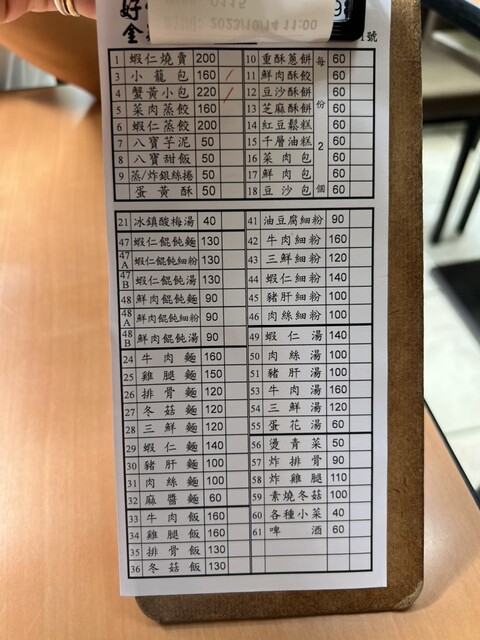 好
0115
時間: 2023/10/14 11:00
金
號
1 蝦仁燒賣 200
3 小籠包 160
4 蟹黃小包 220
5 菜肉蒸餃 160
6 蝦仁蒸餃 200
7 八寶芋泥 50
8 八寶甜飯 50
9 蒸/炸銀絲捲 50
蛋黃酥 50
10 重酥蔥餅 60
11 鮮肉酥餃 60
12 豆沙酥餅 60
13 芝麻酥餅 60
14 紅豆鬆糕 60
15 千層油糕 60
16 菜肉包 60
17 鮮肉包 60
18 豆沙包 60
每份2個
21 冰鎮酸梅湯 40
47 蝦仁餛飩麵 130
47A 蝦仁餛飩細粉 130
47B 蝦仁餛飩湯 130
48 鮮肉餛飩麵 90
48A 鮮肉餛飩細粉 90
48B 鮮肉餛飩湯 90
24 牛肉麵 160
25 雞腿麵 150
26 排骨麵 120
27 冬菇麵 120
28 三鮮麵 120
29 蝦仁麵 140
30 豬肝麵 100
31 肉絲麵 100
32 麻醬麵 60
33 牛肉飯 160
34 雞腿飯 160
35 排骨飯 130
36 冬菇飯 130
41 油豆腐細粉 90
42 牛肉細粉 160
43 三鮮細粉 120
44 蝦仁細粉 140
45 豬肝細粉 100
46 肉絲細粉 100
49 蝦仁湯 140
50 肉絲湯 100
51 豬肝湯 100
53 牛肉湯 160
54 三鮮湯 120
55 蛋花湯 60
56 燙青菜 50
57 炸排骨 90
58 炸雞腿 110
59 素燒冬菇 100
60 各種小菜 40
61 啤酒 60